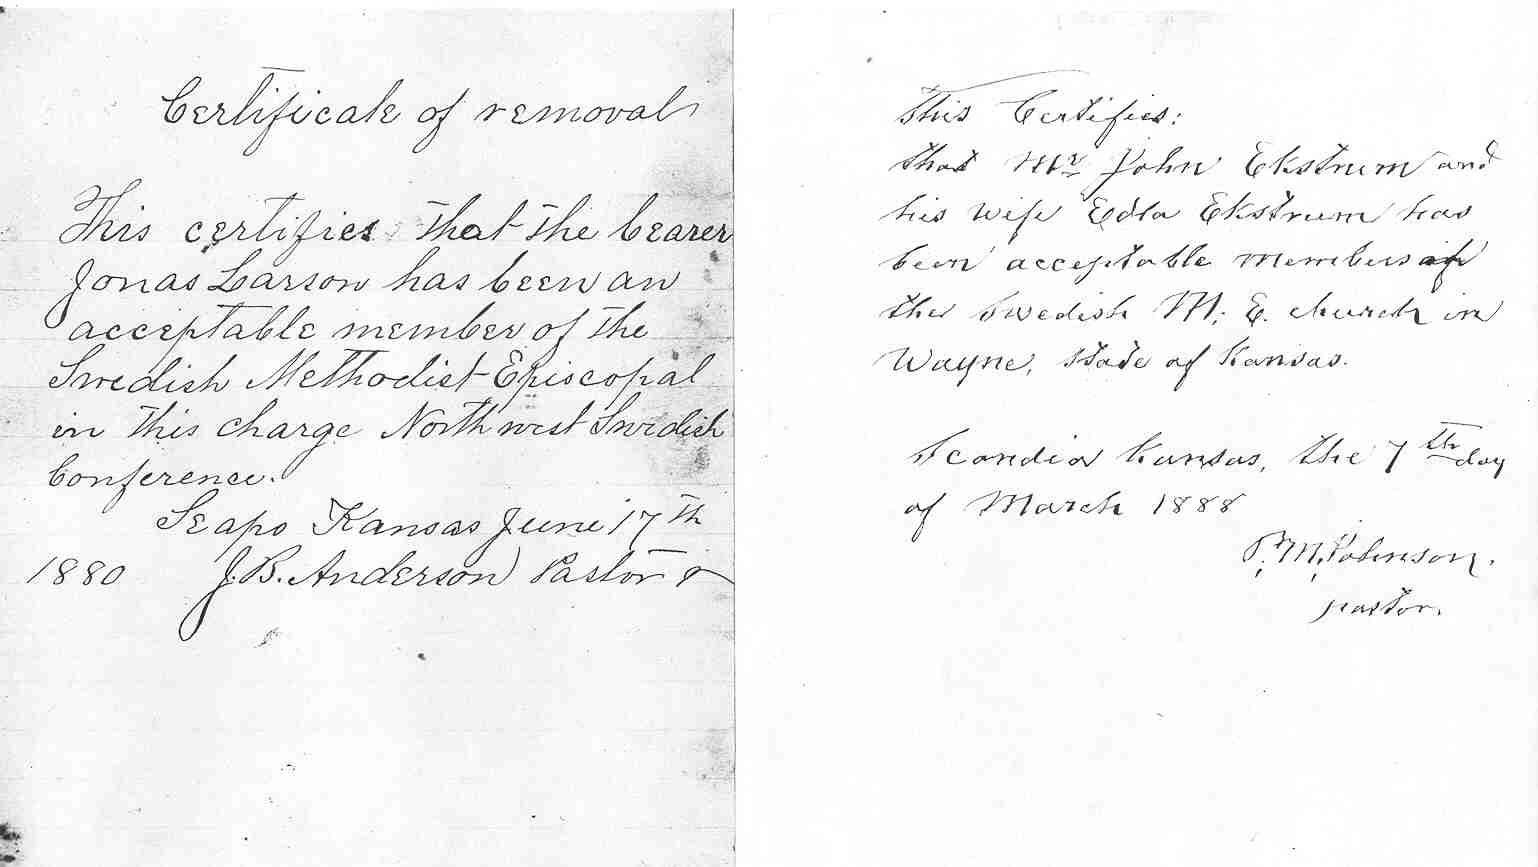 Certificate of removal
This certifies that the bearer
Jonas Larson has been an
acceptable member of the
Swedish Methodist Episcopal
in this charge North west Swedish
Conference.
Seapo Kansas June 17th
1880 J.B. Anderson Pastor
This Certifies:
that Mr John Ekstrum and
his wife Edla Ekstrum has
been acceptable members of
the Swedish M. E. church in
Wayne, State of Kansas.
Scandia Kansas, the 7th day
of March 1888
P. M. Johnson.
pastor.